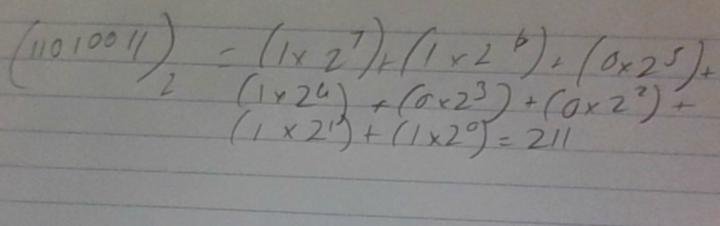 (11010011)₂ = (1×2⁷)+(1×2⁶)+(0×2⁵)+
(1×2⁴)+(0×2³)+(0×2²)+
(1×2¹)+(1×2⁰)=211